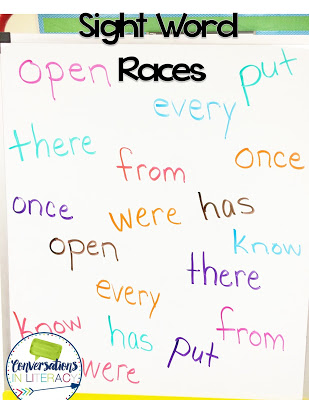 Sight Word
Races
open
put
every
there
from
once
once
were
has
open
know
there
every
know
has
from
put
were
Conversations
IN LITERACY